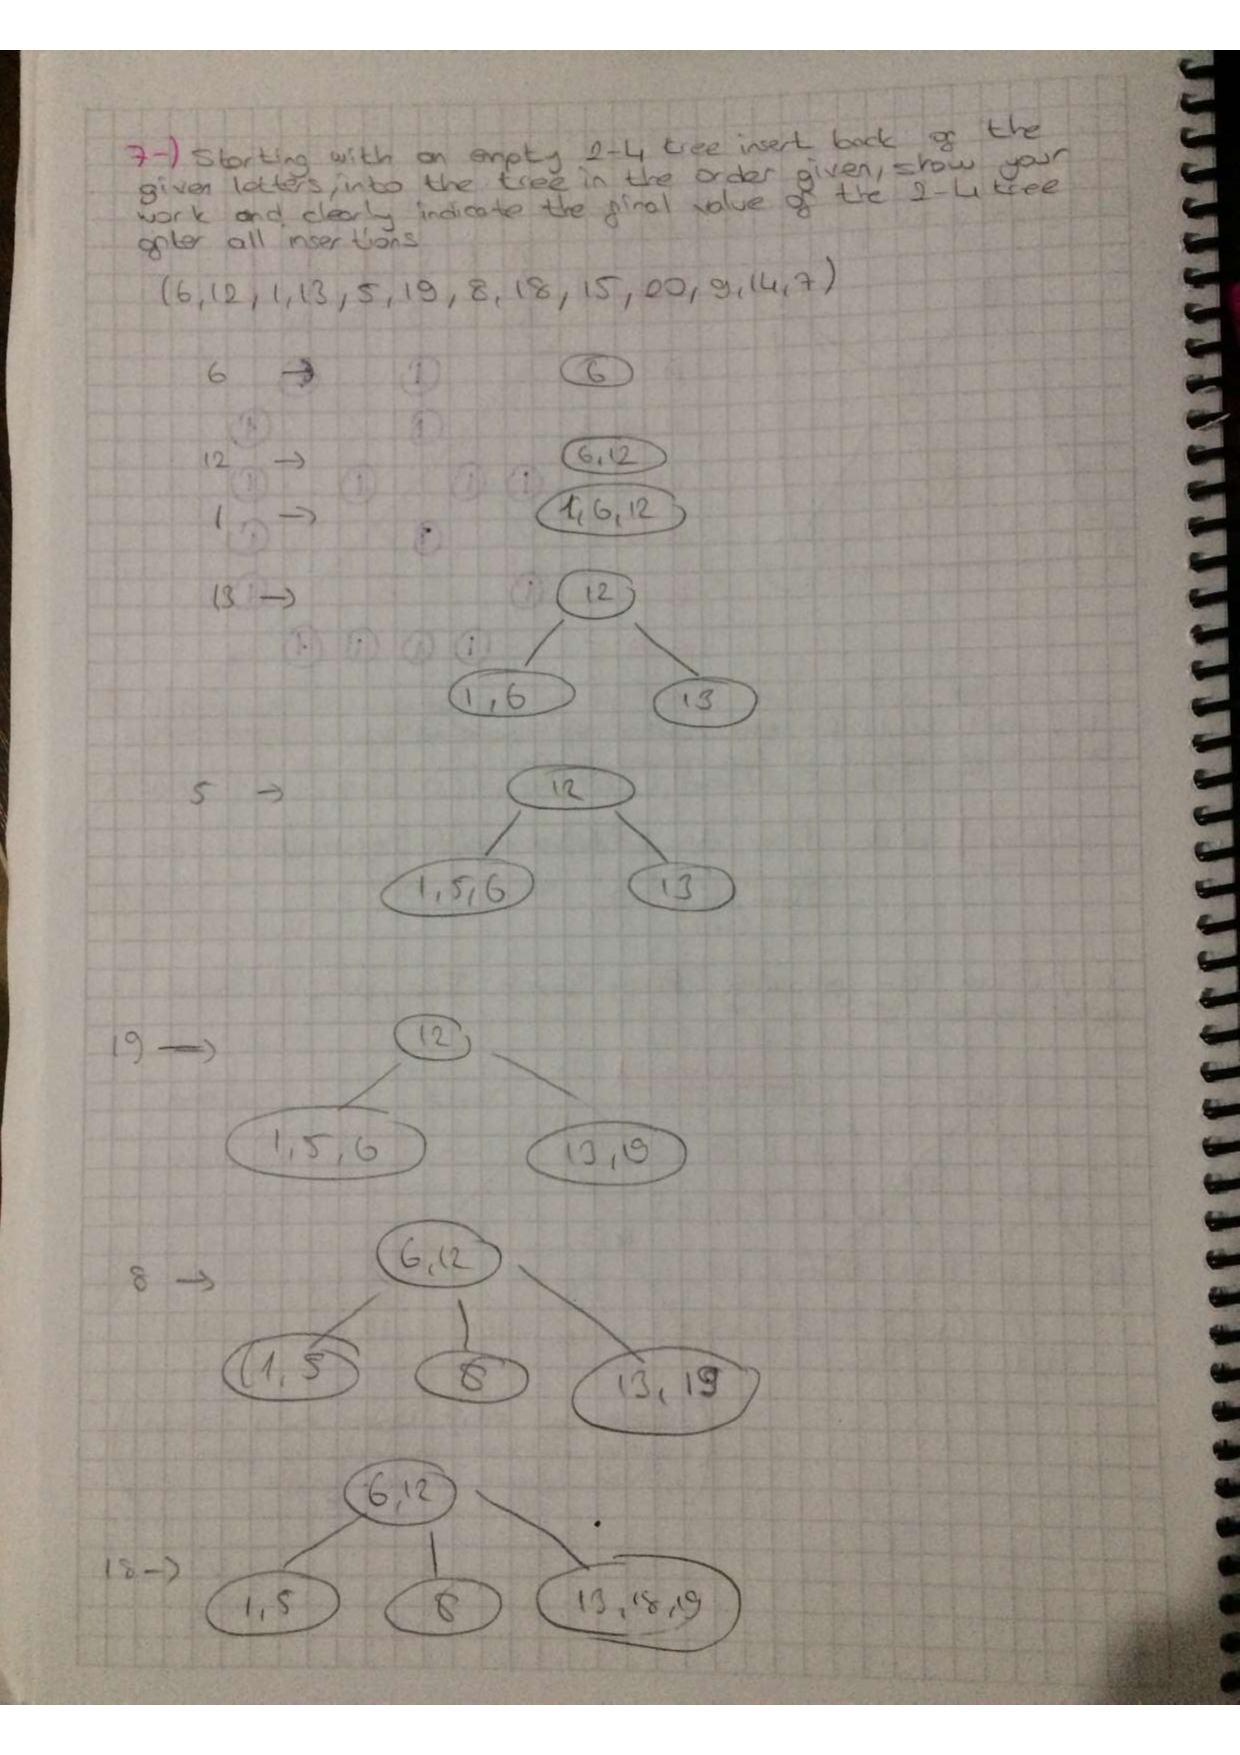 7-) Starting with an empty 2-4 tree insert back of the
given letters, into the tree in the order given, show your
work and clearly indicate the final value of the 2-4 tree
after all insertions
(6,12,1,13,5,19,8,18,15,20,9,14,7)
6 → 6
12 → 6,12
1 → 1,6,12
13 → 12
1,6 13
5 → 12
1,5,6 13
19 → 12
1,5,6 13,19
8 → 6,12
1,5 8 13,19
6,12
18 → 1,5 8 13,18,19